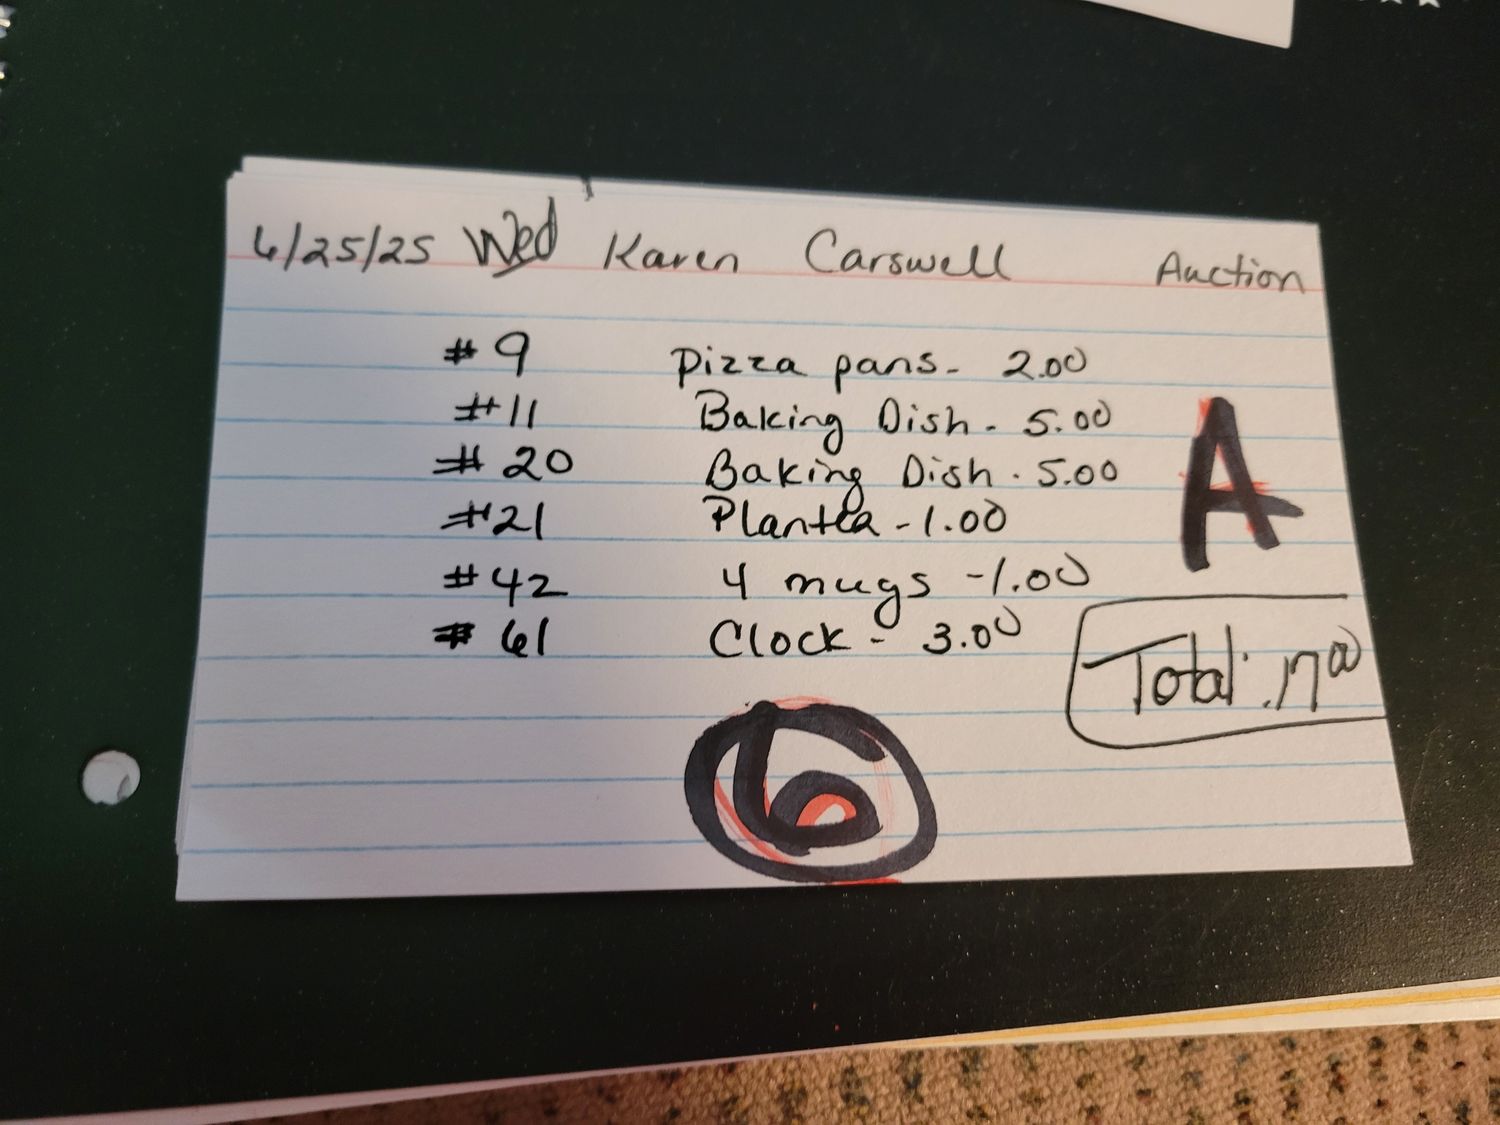 6/25/25 Wed Karen Carswell Auction
#9 Pizza pans - 2.00
#11 Baking Dish - 5.00
#20 Baking Dish - 5.00
#21 Planter - 1.00
#42 4 mugs - 1.00
#61 Clock - 3.00
A
Total: 17.00
6